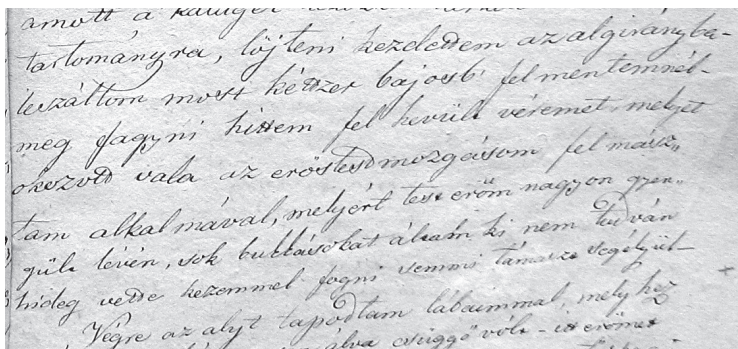 amott a
tartományra, löjteni kezdettem az algirányba-
leszálltom most kétszer bajosb fel mentemnél-
meg fagyni hittem fel hevült véremet, melyet
okozott vala az erőstestmozgásom fel mász„
tam alkalmával, melyért test erőm nagyon gyen„
gült lévén, sok buktásokat álltam ki nem tudván
hideg vette kezemmel fogni semmi támaszt segélyül-
Végre az alyt tapodtam lábaimmal, mely hez
csüggő völt - itt erőmet